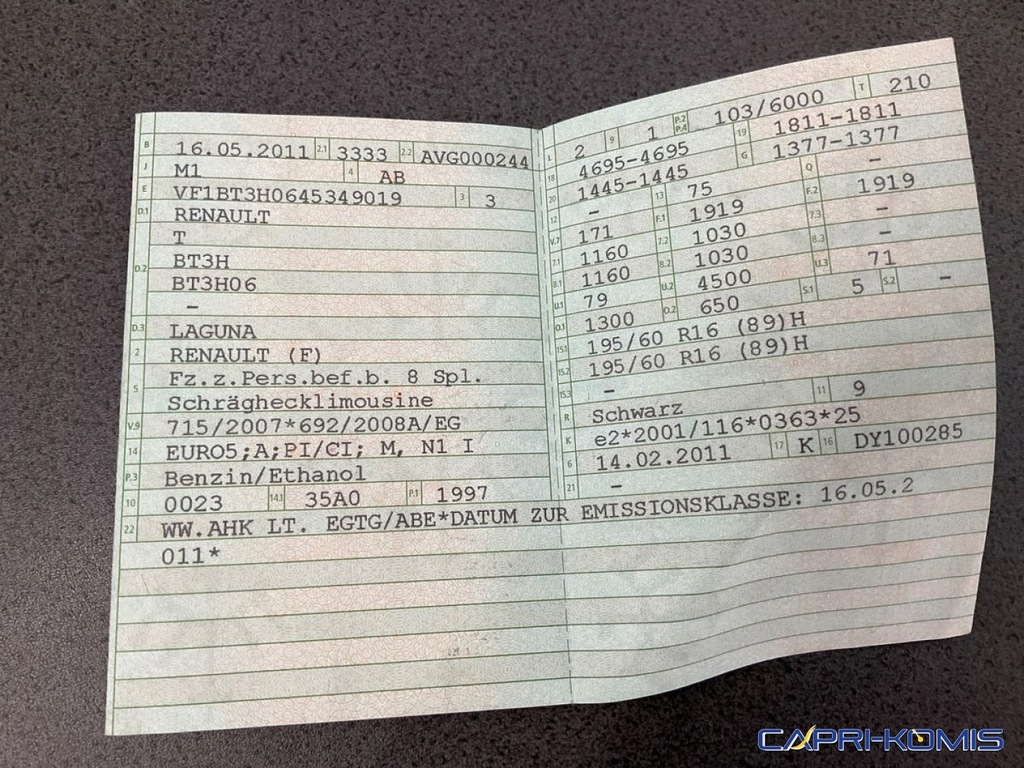 B 16.05.2011 2.1 3333 2.2 AVG000244
J M1 4 AB
E VF1BT3H0645349019 3 3
D.1 RENAULT
T
D.2 BT3H
BT3H06
–
D.3 LAGUNA
2 RENAULT (F)
5 Fz.z.Pers.bef.b. 8 Spl.
Schräghecklimousine
V.9 715/2007*692/2008A/EG
14 EURO5;A;PI/CI; M, N1 I
P.3 Benzin/Ethanol
10 0023 14.1 35A0 P.1 1997
L 2 9 1 P.2 P.4 103/6000 T 210
18 4695-4695 19 1811-1811
20 1445-1445 G 1377-1377
12 – 13 75 Q –
V.7 171 F.1 1919 F.2 1919
7.1 1160 7.2 1030 7.3 –
8.1 1160 8.2 1030 8.3 –
U.1 79 U.2 4500 U.3 71
O.1 1300 O.2 650 S.1 5 S.2 –
15.1 195/60 R16 (89)H
15.2 195/60 R16 (89)H
15.3 –
R Schwarz 11 9
K e2*2001/116*0363*25
6 14.02.2011 17 K 16 DY100285
21 –
22 WW.AHK LT. EGTG/ABE*DATUM ZUR EMISSIONSKLASSE: 16.05.2
011*
CAPRI-KOMIS